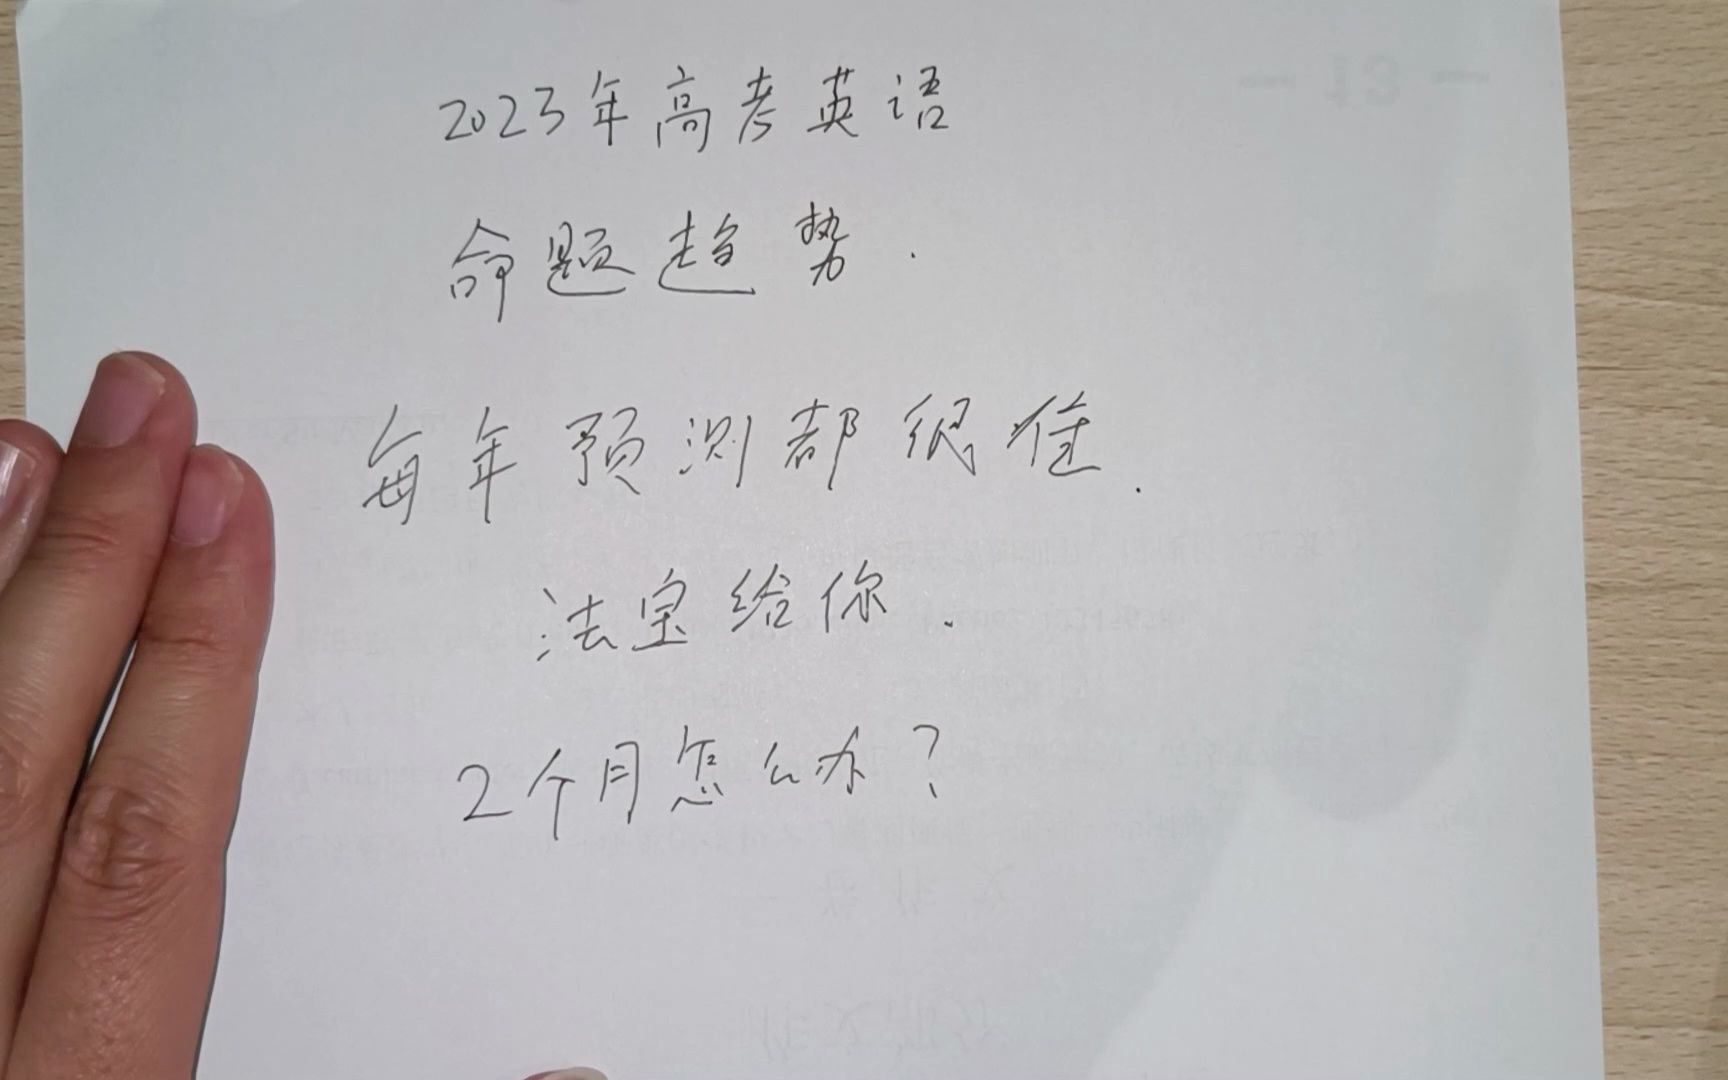 2023年高考英语
命题趋势.
每年预测都很准.
法宝给你.
2个月怎么办?